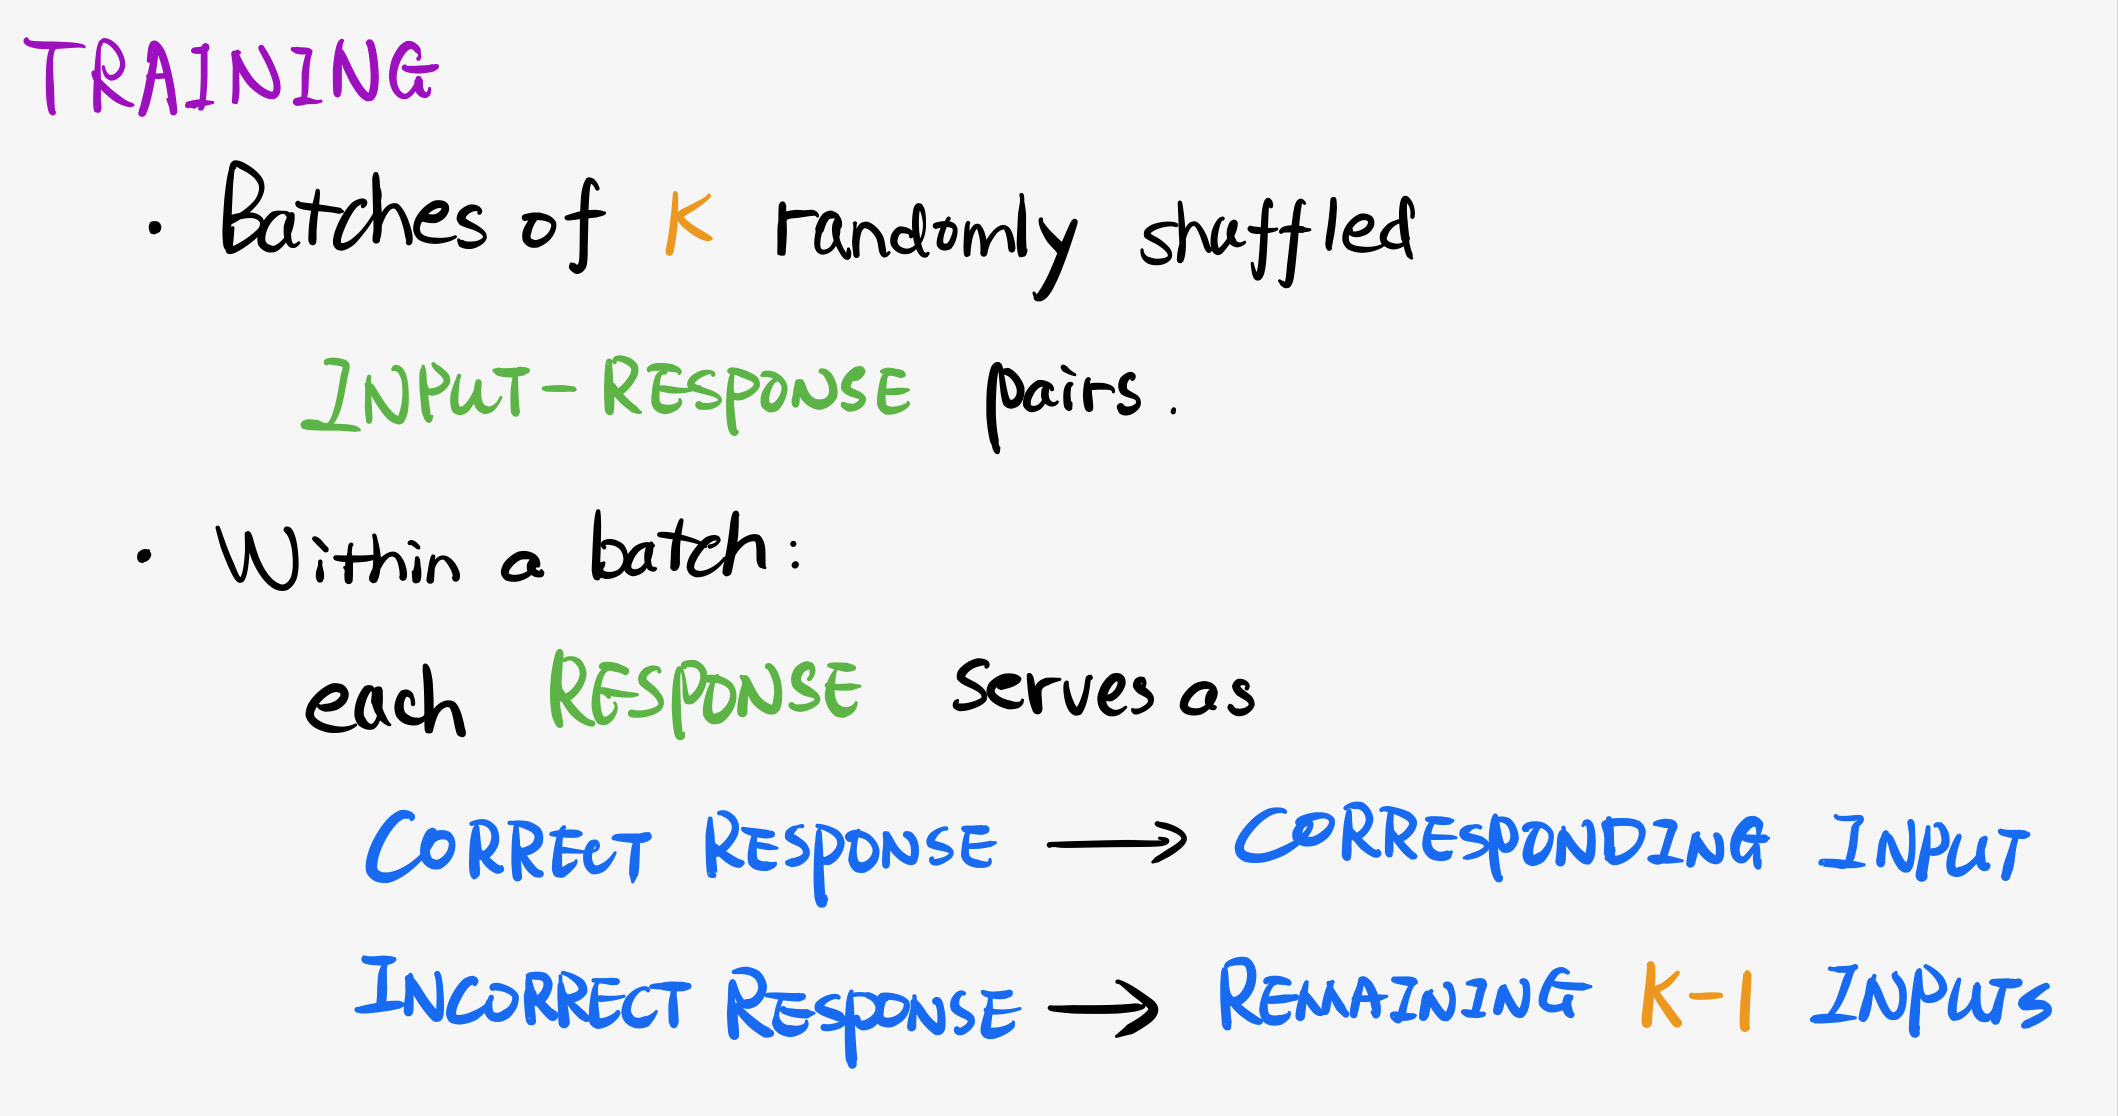 TRAINING
· Batches of K randomly shuffled
INPUT-RESPONSE pairs.
· Within a batch:
each RESPONSE serves as
CORRECT RESPONSE → CORRESPONDING INPUT
INCORRECT RESPONSE → REMAINING K-1 INPUTs